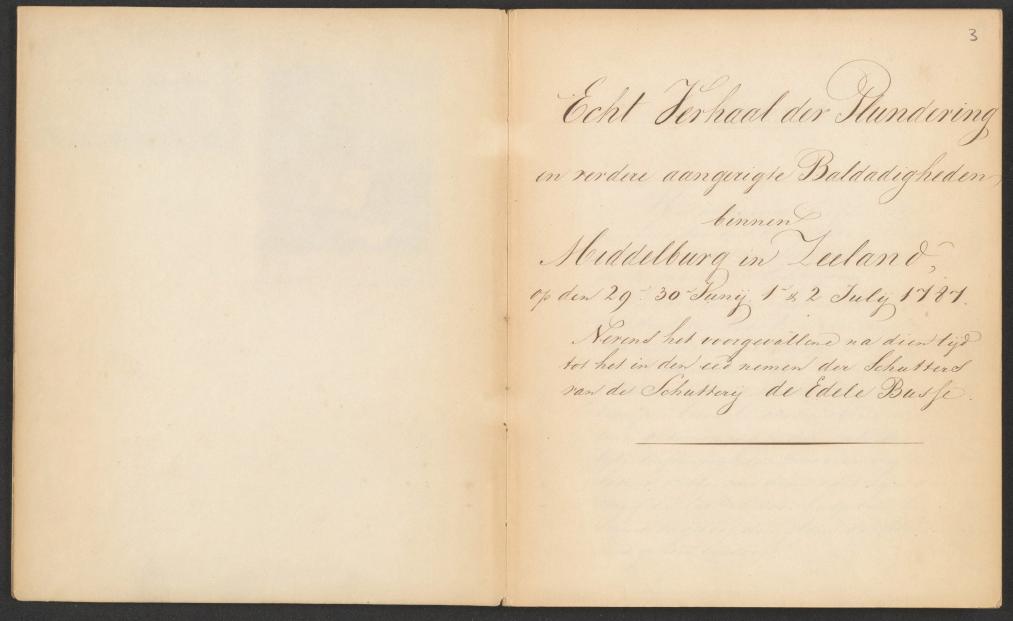 3
Echt Verhaal der Plundering
en verdere aangerigte Baldadigheden,
binnen
Middelburg in Zeeland,
op den 29- 30- Junij 1- & 2 Julij 1787.
Nevens het voorgevallene na dien tijd
tot het in den eed nemen der Schutters
van de Schutterij de Edele Busse.